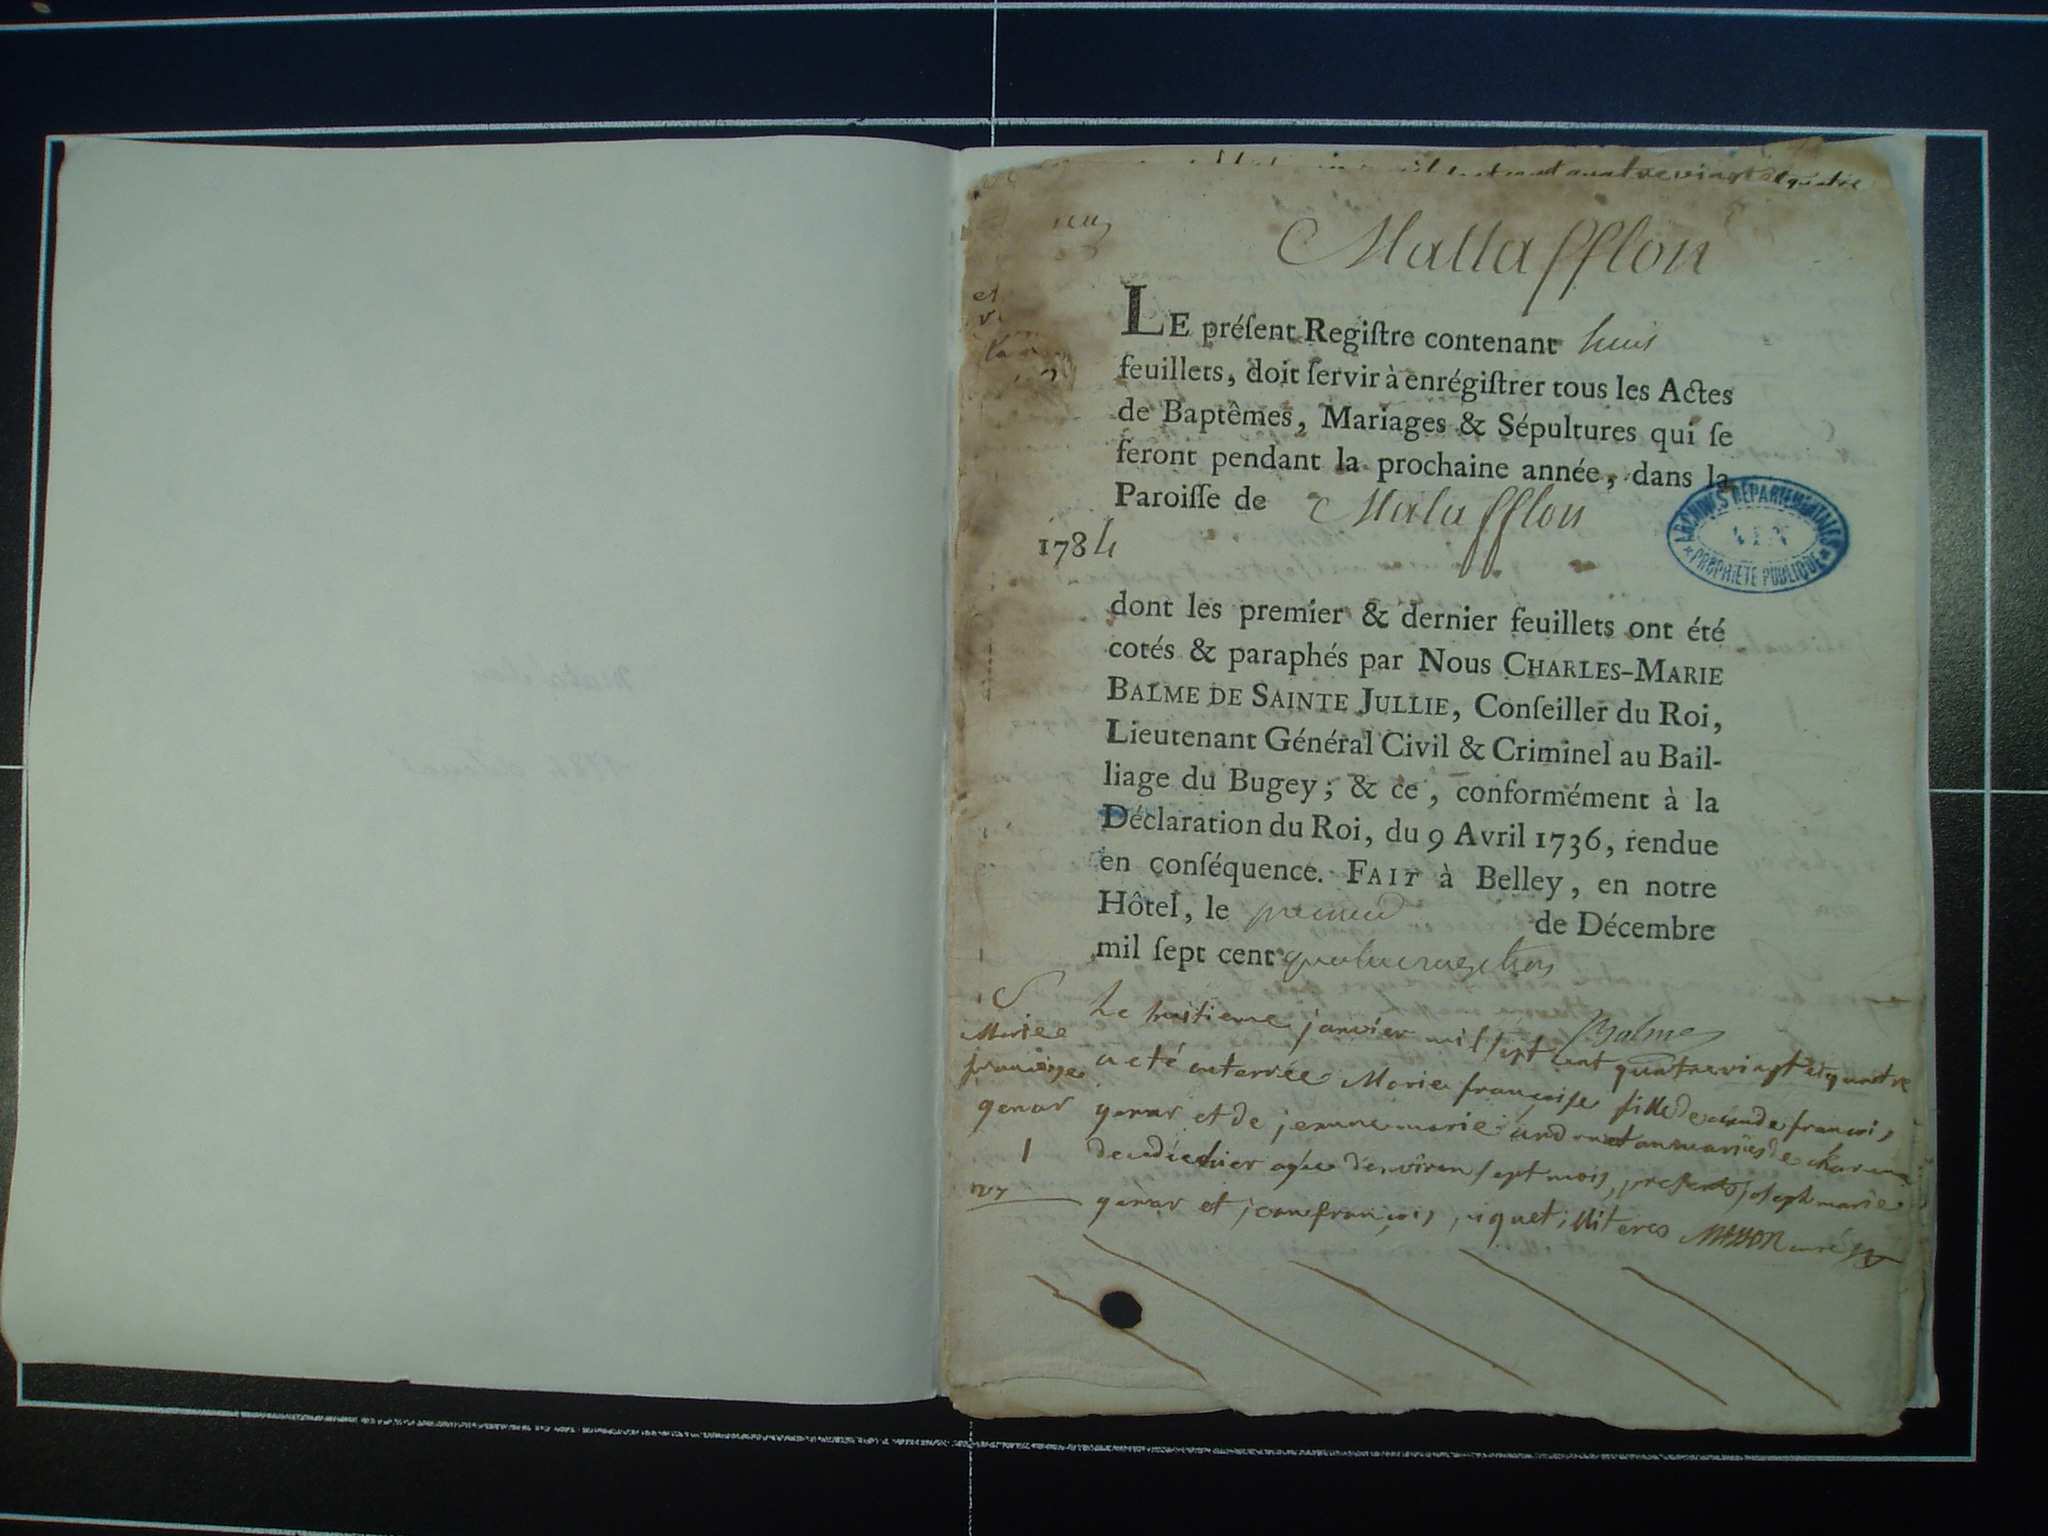 quatre vingt et quatre
Mattafflon
LE préſent Regiſtre contenant huit
feuillets, doit ſervir à enrégiſtrer tous les Actes
de Baptêmes, Mariages & Sépultures qui ſe
feront pendant la prochaine année, dans la
Paroiſſe de Matafflon
1784
ARCHIVES DÉPARTEMENTALES
PROPRIÉTÉ PUBLIQUE
dont les premier & dernier feuillets ont été
cotés & paraphés par Nous CHARLES-MARIE
BALME DE SAINTE JULLIE, Conſeiller du Roi,
Lieutenant Général Civil & Criminel au Bail-
liage du Bugey; & ce, conformément à la
Déclaration du Roi, du 9 Avril 1736, rendue
en conſéquence. FAIT à Belley, en notre
Hôtel, le premier de Décembre
mil ſept cent quatre vingt trois
Balme
S
Mariee
françoise
genar
1
Le huitieme janvier mil sept cent quatre vingt et quatre
a eté enterrée Marie françoise fille de claude françois
genar et de jeanne marie
agée d'environ sept mois, presents joseph marie
genar et jean françois piquet illiteres curé